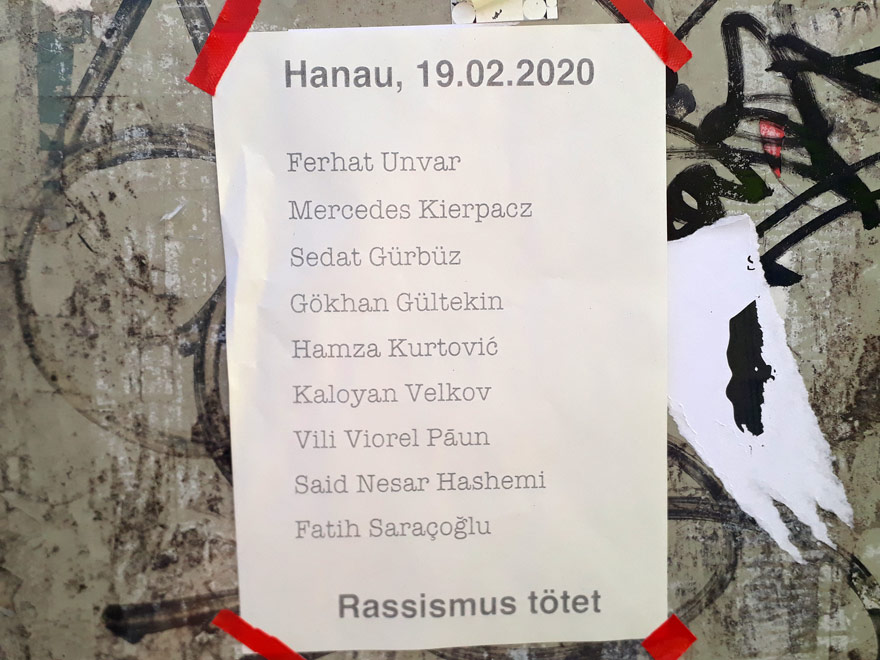 Hanau, 19.02.2020
Ferhat Unvar
Mercedes Kierpacz
Sedat Gürbüz
Gökhan Gültekin
Hamza Kurtović
Kaloyan Velkov
Vili Viorel Pāun
Said Nesar Hashemi
Fatih Saraçoğlu
Rassismus tötet